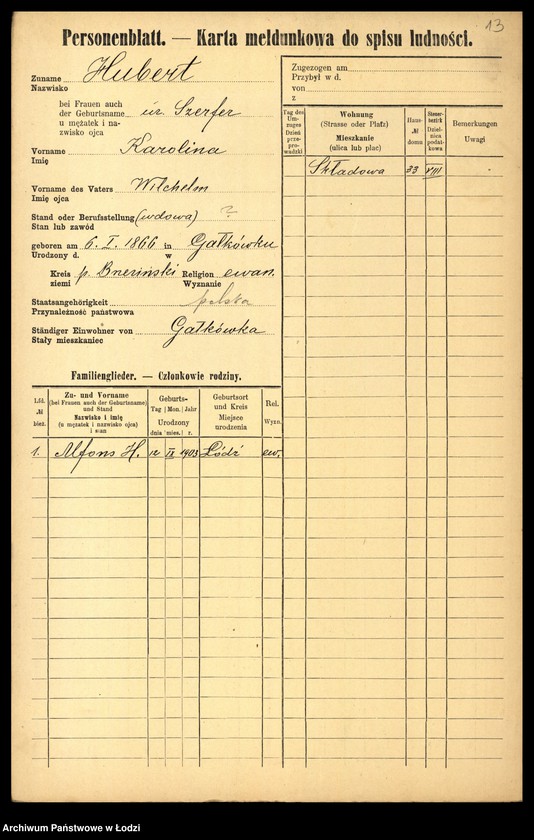 13
Personenblatt. — Karta meldunkowa do spisu ludności.
Zuname Hubert
Nazwisko
bei Frauen auch
der Geburtsname ur. Szerfer
u mężatek i na-
zwisko ojca
Vorname Karolina
Imię
Vorname des Vaters Wilchelm
Imię ojca
Stand oder Berufsstellung (wdowa) ?
Stan lub zawód
geboren am 6. I. 1866 in Gałkówku
Urodzony d. w
Kreis p. Religion ewan.
ziemi Wyznanie
Staatsangehörigkeit polska
Przynależność państwowa
Ständiger Einwohner von Gałkówka
Stały mieszkaniec
Familienglieder. — Członkowie rodziny.
Lfd. № bież.
Zu- und Vorname
(bei Frauen auch der Geburtsname)
und Stand
Nazwisko i imię
(u mężatek i nazwisko ojca)
i stan
Geburts-
Tag | Mon. | Jahr
Urodzony
dnia | mies. | r.
Geburtsort
und Kreis
Miejsce
urodzenia
Rel.
Wyzn.
1. Alfons H. 12 IX 1903 Łódź ew.
Zugezogen am
Przybył w d.
von
z
Tag des
Um-
zuges
Dzień
prze-
prowadzki
Wohnung
(Strasse oder Platz)
Mieszkanie
(ulica lub plac)
Haus-
№
domu
Steuer-
bezirk
Dziel-
nica
podat-
kowa
Bemerkungen
Uwagi
Składowa 33 VIII
Archiwum Państwowe w Łodzi